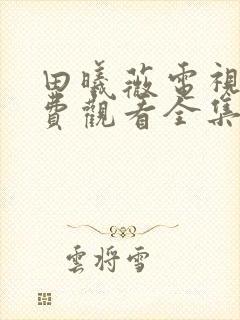 田曦薇電視
費觀看全集
雲將雪